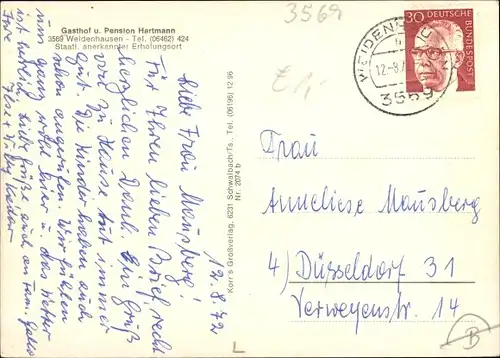 Gasthof u. Pension Hartmann
3569 Weidenhausen - Tel. (06462) 424
Staatl. anerkannter Erholungsort
3569
30 DEUTSCHE BUNDESPOST
WEIDENH
12.-8.7
3569
12.8.72
Liebe Frau Mausberg!
Für Ihren lieben Brief recht
herzlichen Dank. Ein Gruß
von zu Hause tut immer
gut. Die Kinder haben auch
schon angerufen. Wir fühlen
uns ganz wohl hier u. das Wetter
ist herrlich. Liebe Grüße auch an Fam.
Ihre
Korr's Großverlag, 6231 Schwalbach/Ts., Tel. (06196) 12 96
Nr. 2074 b
Frau
Anneliese Mausberg
4) Düsseldorf 31
Verweyenstr. 14
B